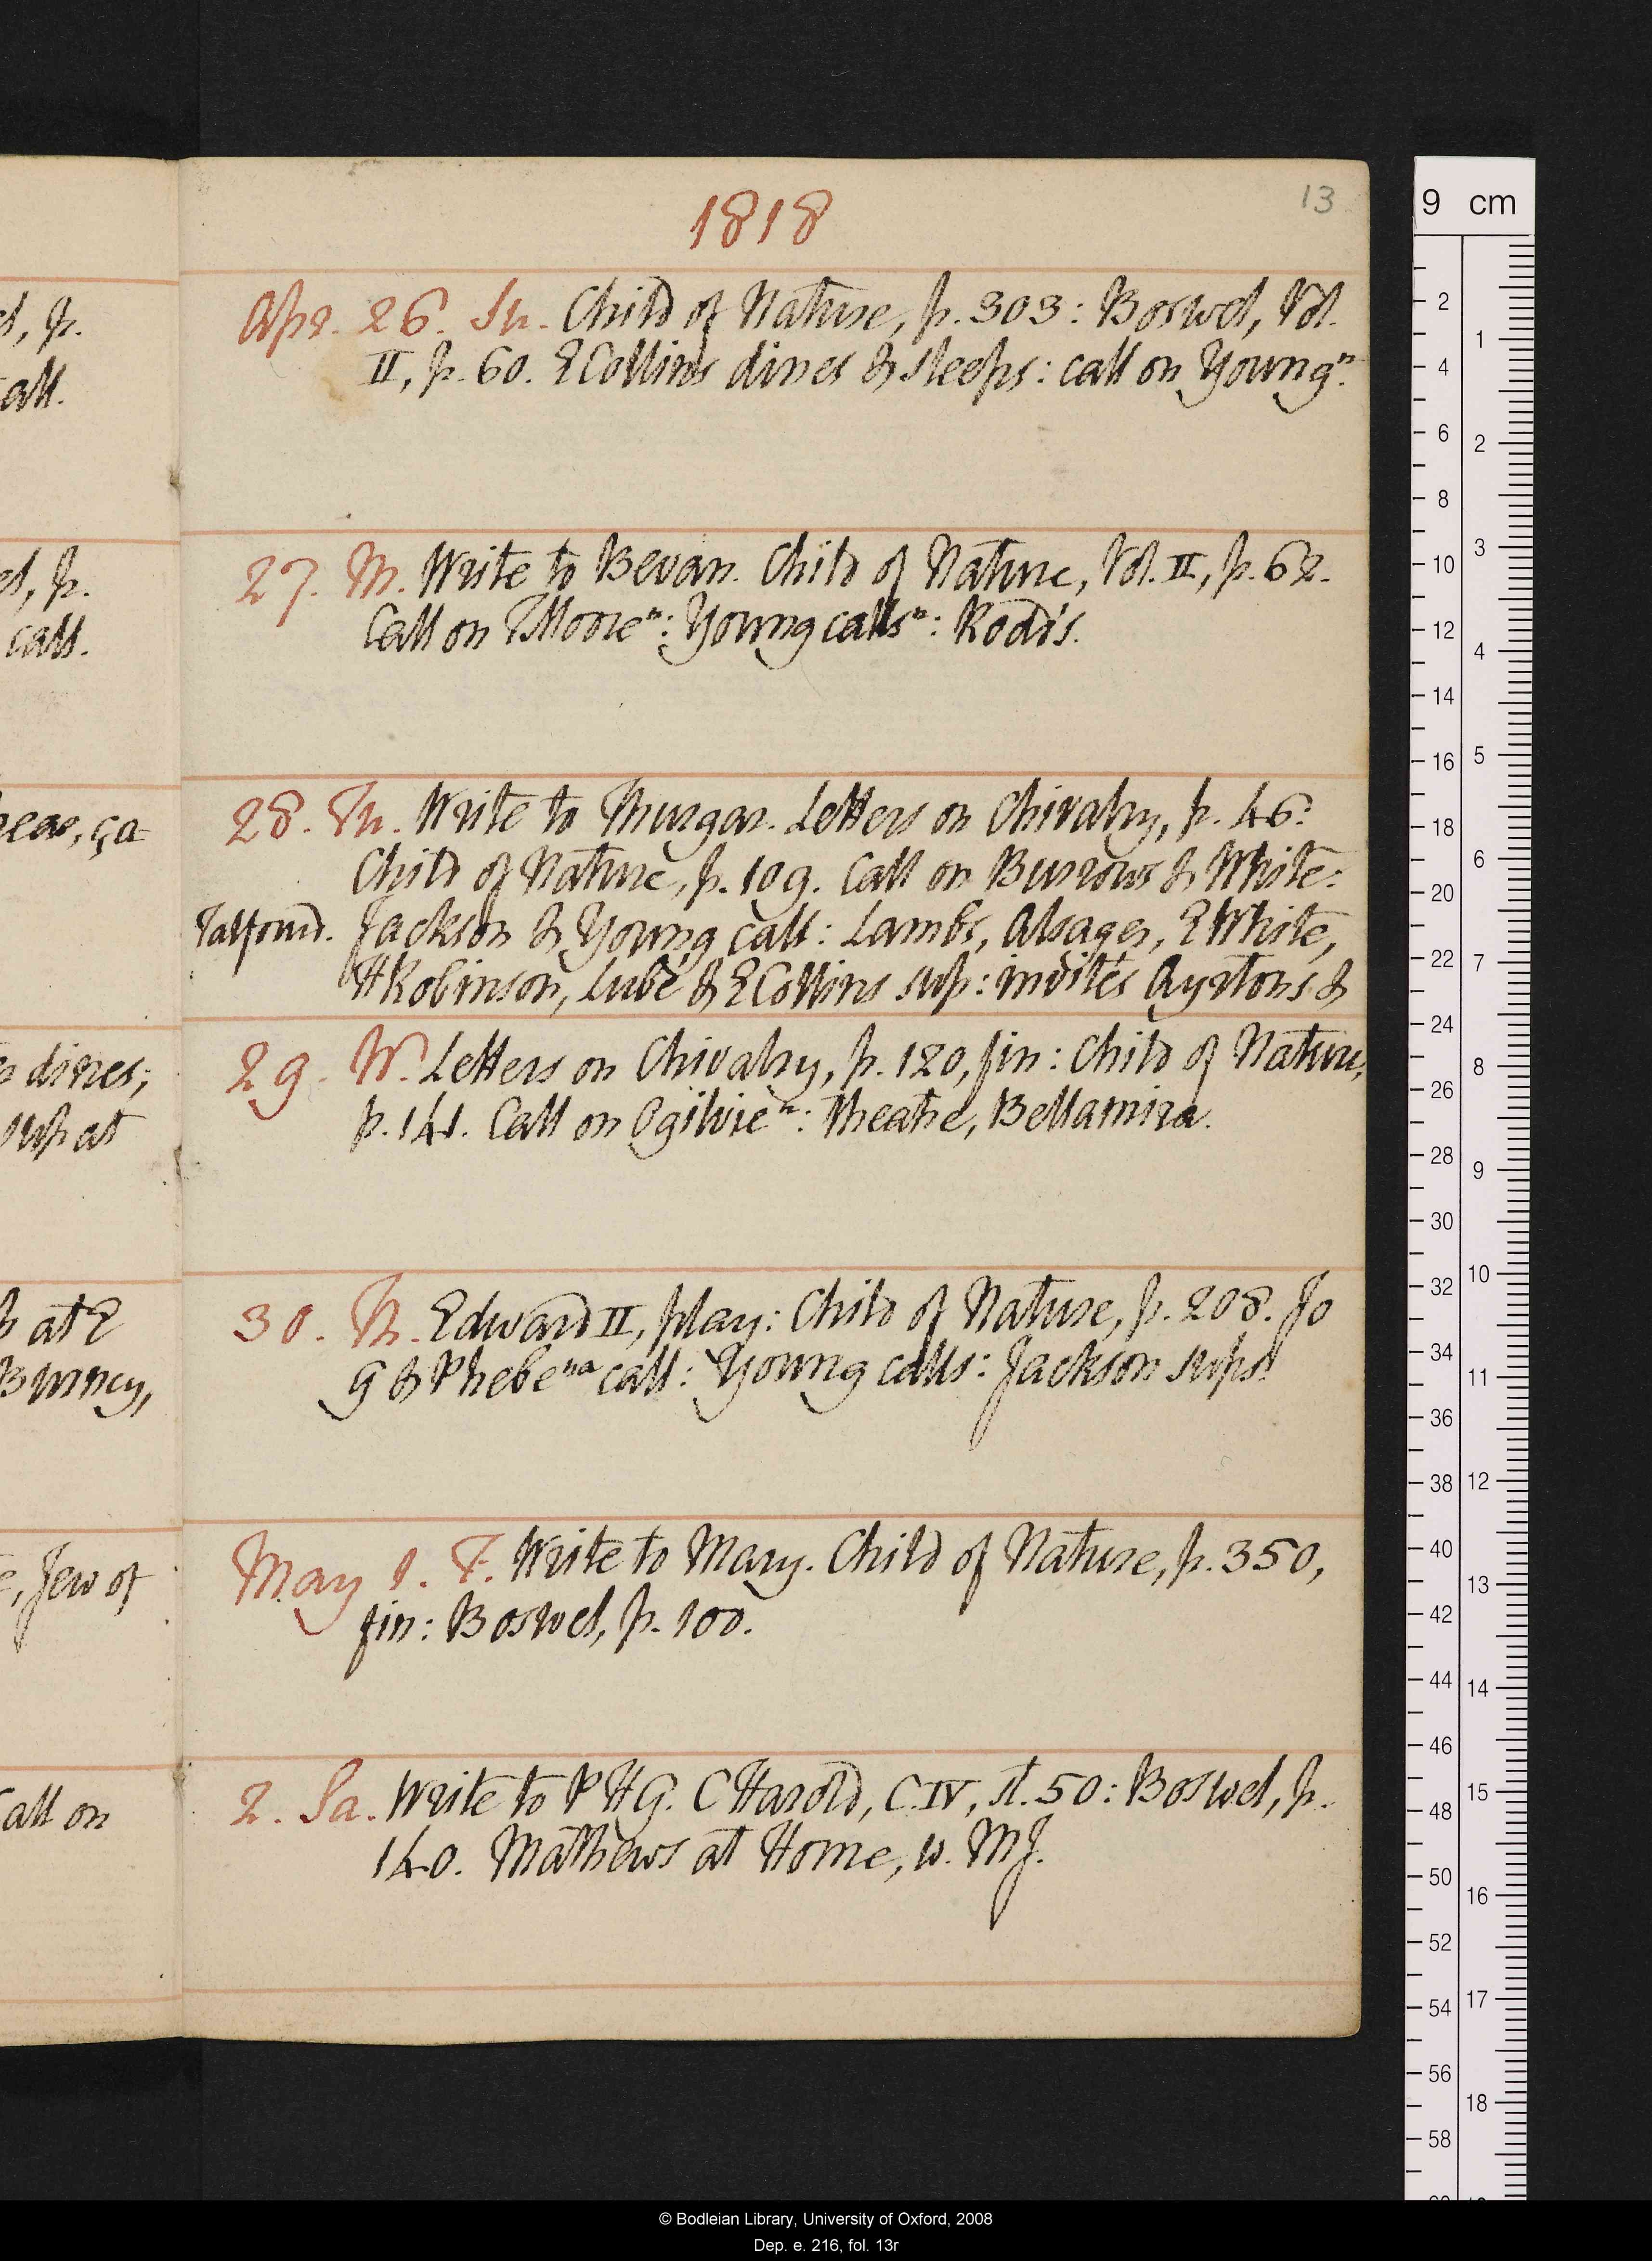 1818
13
Apr. 26. Su. Child of Nature, p. 303: Boswel, Vol.
II, p. 60. E Collins dines & sleeps: call on Young n.
27. M. Write to Bevan. Child of Nature, Vol. II, p. 62.
Call on T Moore n: Young calls n: Rodd's.
28. Tu. Write to Thurgar. Letters on Chivalry, p. 46:
Child of Nature, p. 109. Call on Burrows & White:
Talfourd. Jackson & Young call: Lambs, Alsager, E White,
H Robinson, Lubé & E Collins sup: invités Ayrtons &
29. W. Letters on Chivalry, p. 120, fin: Child of Nature,
p. 141. Call on Ogilvie n: Theatre, Bellamira.
30. Th. Edward II, play: Child of Nature, p. 208. Jo
G & Phebe na call: Young calls: Jackson sups.
May 1. F. Write to Mary. Child of Nature, p. 350,
fin: Boswel, p. 100.
2. Sa. Write to P H G. C Harold, C. IV, st. 50: Boswel, p.
140. Mathews at Home, w. M J.
d, p.
all.
el, p.
call.
dines;
sup at
p at E
Burney,
Jew of
Call on
9 cm
2
4
6
8
10
12
14
16
18
20
22
24
26
28
30
32
34
36
38
40
42
44
46
48
50
52
54
56
58
1
2
3
4
5
6
7
8
9
10
11
12
13
14
15
16
17
18
© Bodleian Library, University of Oxford, 2008
Dep. e. 216, fol. 13r